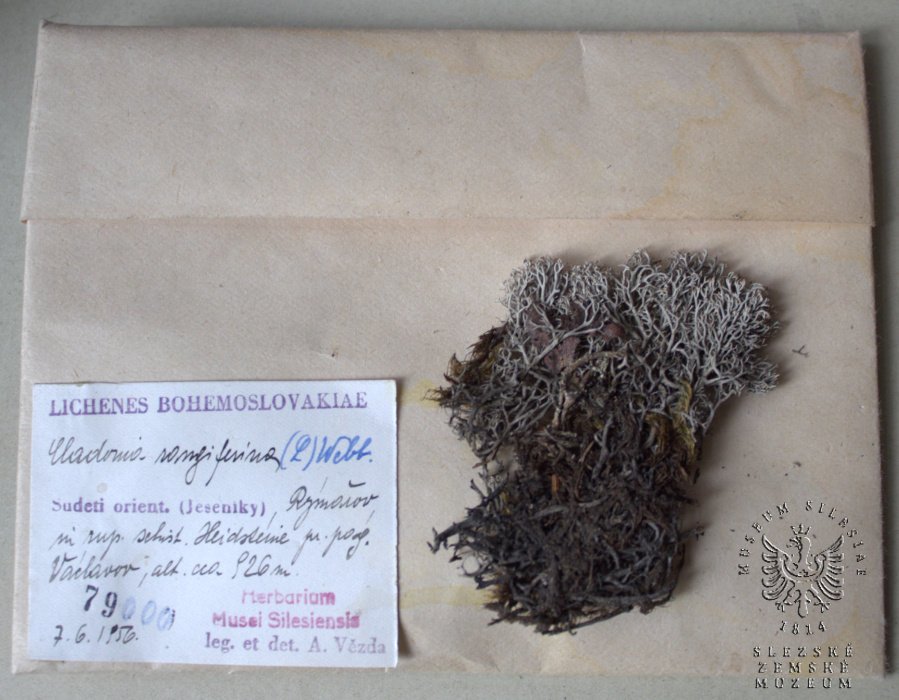 LICHENES BOHEMOSLOVAKIAE
Cladonia rangiferina (L) Webb.
Sudeti orient. (Jeseníky), Rýmařov
in rup. schist. Heidsteine pr. pag.
Václavov, alt. cca 926 m.
79000
Herbarium
Musei Silesiensis
7.6.1956.
leg. et det. A. Vězda
MUSEUM SILESIAE
1814
SLEZSKÉ
ZEMSKÉ
MUZEUM